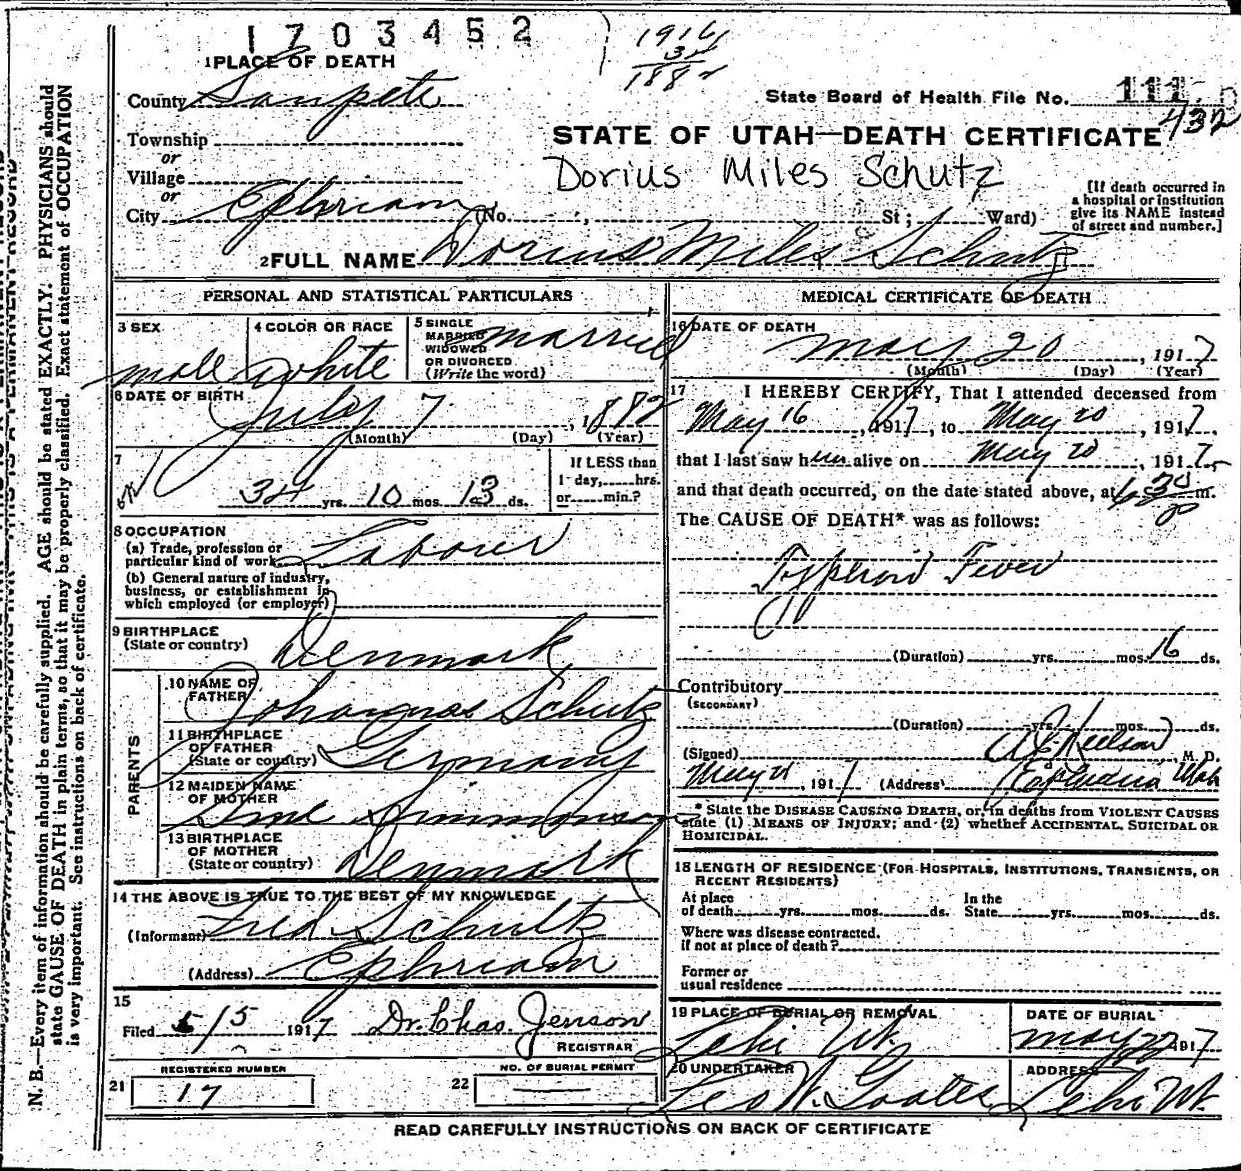 1703452
1916
34
1882
1 PLACE OF DEATH
County Sanpete
State Board of Health File No. 111
432
Township
or
Village
or
City Ephriam (No. St; 1 Ward)
STATE OF UTAH—DEATH CERTIFICATE
Dorius Miles Schutz
[If death occurred in
a hospital or institution
give its NAME instead
of street and number.]
2 FULL NAME Dorius Miles Schutz
PERSONAL AND STATISTICAL PARTICULARS
3 SEX male
4 COLOR OR RACE white
5 SINGLE
MARRIED
WIDOWED
OR DIVORCED
(Write the word)
married
6 DATE OF BIRTH
July 7, 1882
(Month) (Day) (Year)
7
34 yrs. 10 mos. 13 ds.
If LESS than
1 day, hrs.
or min.?
8 OCCUPATION
(a) Trade, profession or
particular kind of work Labour
(b) General nature of industry,
business, or establishment in
which employed (or employer)
9 BIRTHPLACE
(State or country) Denmark
PARENTS
10 NAME OF
FATHER Johannas Schutz
11 BIRTHPLACE
OF FATHER
(State or country) Germany
12 MAIDEN NAME
OF MOTHER
13 BIRTHPLACE
OF MOTHER
(State or country) Denmark
14 THE ABOVE IS TRUE TO THE BEST OF MY KNOWLEDGE
(Informant) Fred Schultz
(Address) Ephriam
15
Filed 5/5 1917 Dr. Chas. Jenson
REGISTRAR
21 REGISTERED NUMBER
17
22 NO. OF BURIAL PERMIT
MEDICAL CERTIFICATE OF DEATH
16 DATE OF DEATH
May 20, 1917
(Month) (Day) (Year)
17 I HEREBY CERTIFY, That I attended deceased from
May 16, 1917, to May 20, 1917,
that I last saw him alive on May 20, 1917,
and that death occurred, on the date stated above, at 6 30 m.
The CAUSE OF DEATH* was as follows:
Typhoid Fever
(Duration) yrs. mos. 16 ds.
Contributory
(SECONDARY)
(Duration) yrs. mos. ds.
(Signed) Nielson, M. D.
May 21, 1917 (Address) Ephraim Utah
* State the DISEASE CAUSING DEATH, or, in deaths from VIOLENT CAUSES
state (1) MEANS OF INJURY; and (2) whether ACCIDENTAL, SUICIDAL OR
HOMICIDAL.
18 LENGTH OF RESIDENCE (FOR HOSPITALS, INSTITUTIONS, TRANSIENTS, OR
RECENT RESIDENTS)
At place
of death yrs. mos. ds.
In the
State yrs. mos. ds.
Where was disease contracted.
if not at place of death?
Former or
usual residence
19 PLACE OF BURIAL OR REMOVAL
Lehi Ut.
DATE OF BURIAL
May 22 1917
20 UNDERTAKER
Leo W. Goates
ADDRESS
Lehi Ut.
READ CAREFULLY INSTRUCTIONS ON BACK OF CERTIFICATE
N. B.—Every item of information should be carefully supplied. AGE should be stated EXACTLY. PHYSICIANS should
state CAUSE OF DEATH in plain terms, so that it may be properly classified. Exact statement of OCCUPATION
is very important. See instructions on back of certificate.